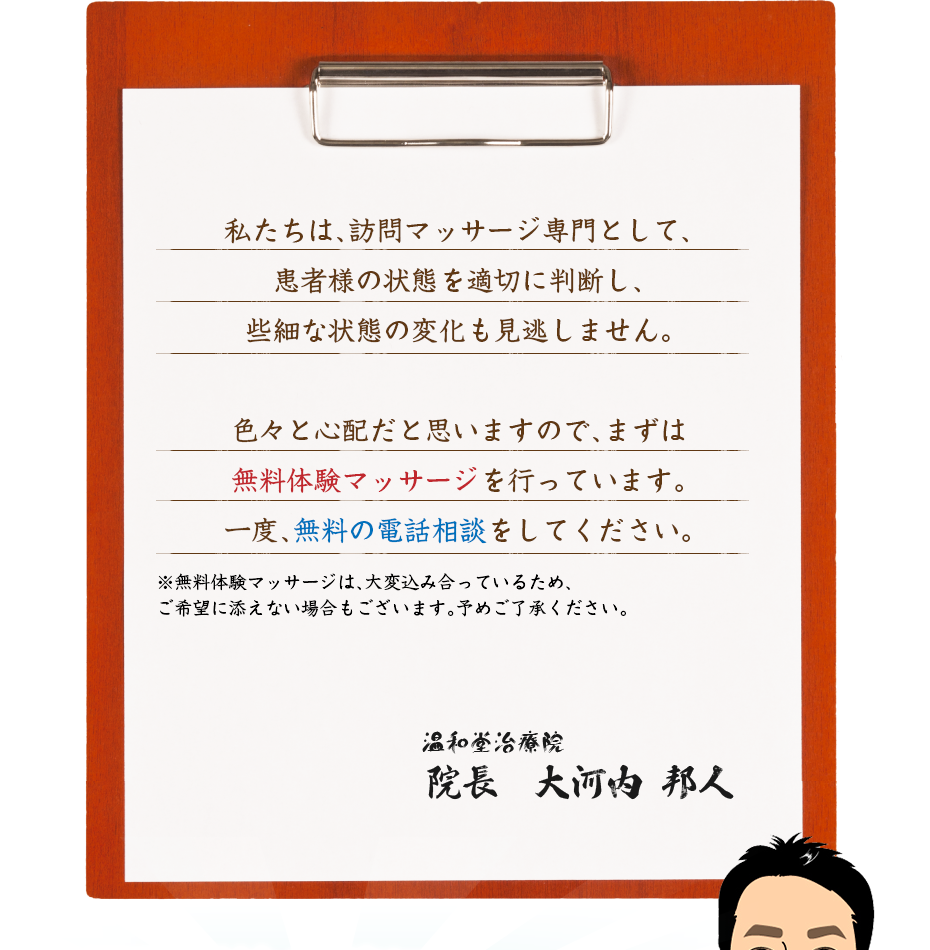 私たちは、訪問マッサージ専門として、
患者様の状態を適切に判断し、
些細な状態の変化も見逃しません。
色々と心配だと思いますので、まずは
無料体験マッサージを行っています。
一度、無料の電話相談をしてください。
※無料体験マッサージは、大変込み合っているため、
ご希望に添えない場合もございます。予めご了承ください。
温和堂治療院
院長 大河内 邦人